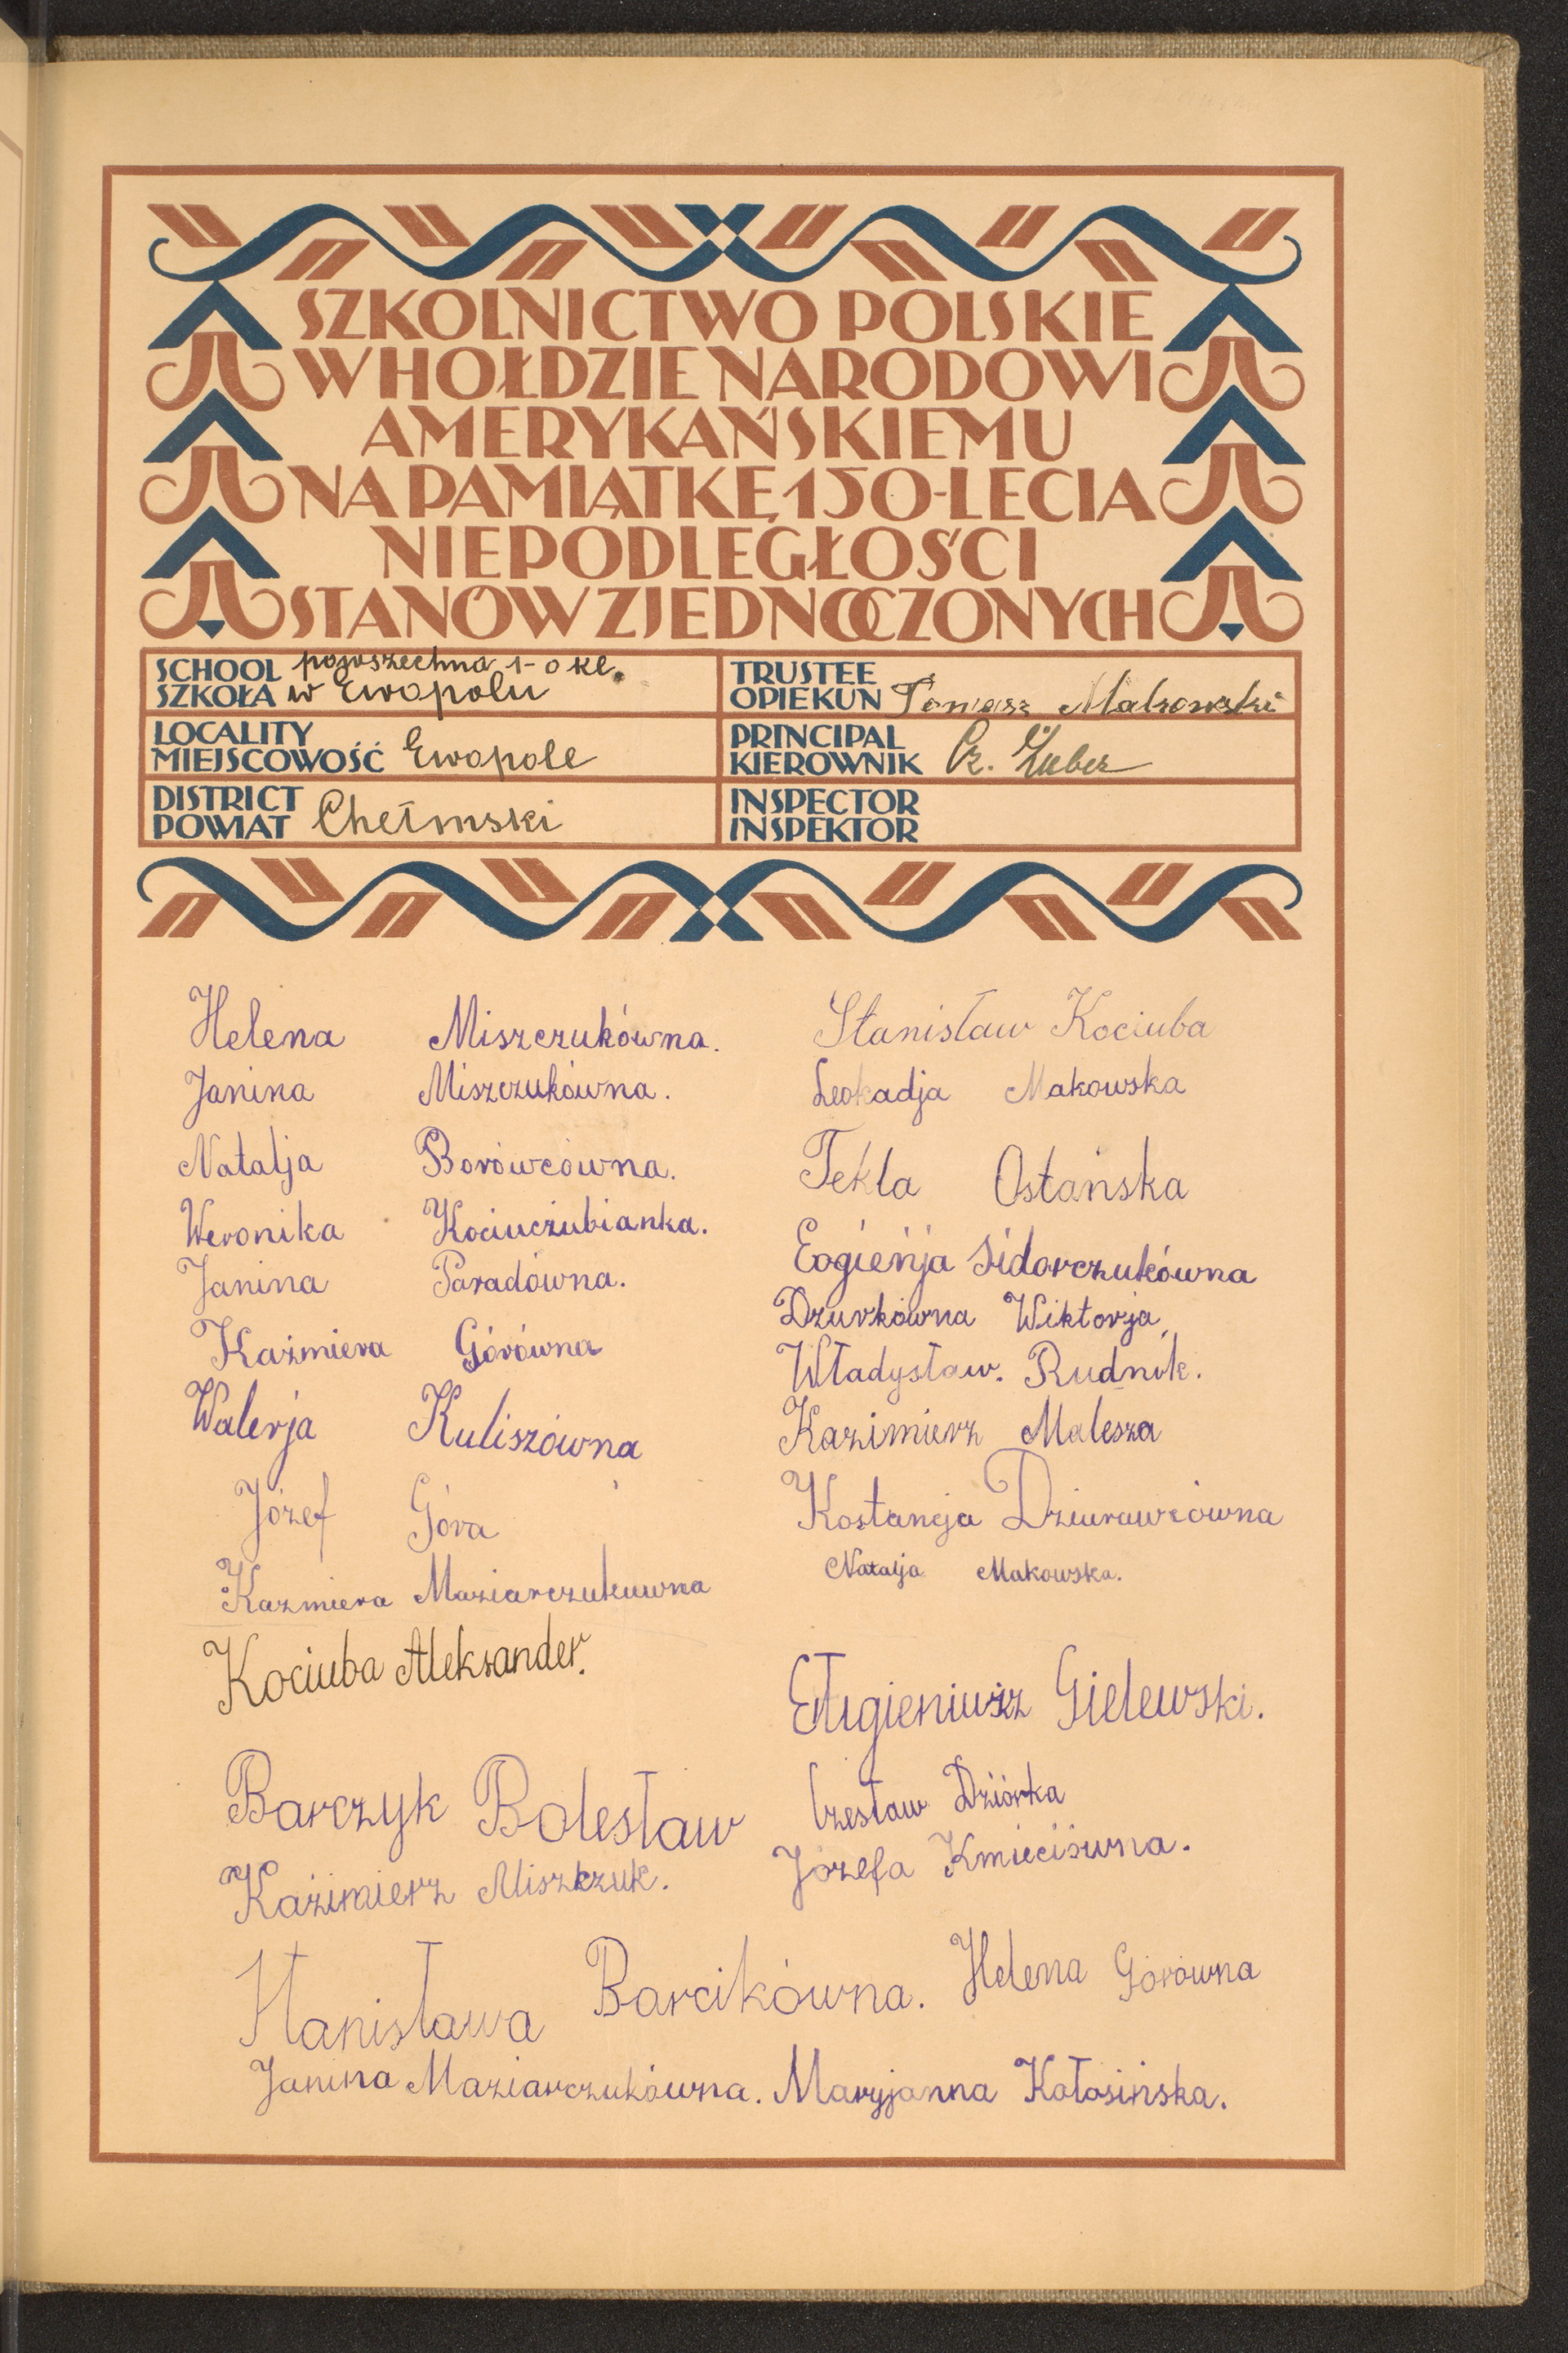 SZKOLNICTWO POLSKIE
W HOŁDZIE NARODOWI
AMERYKAŃSKIEMU
NA PAMIĄTKĘ 150-LECIA
NIEPODLEGŁOŚCI
STANÓW ZJEDNOCZONYCH
SCHOOL
SZKOŁA
powszechna 1-o kl.
w Ewopolu
TRUSTEE
OPIEKUN Tomasz Makowski
LOCALITY
MIEJSCOWOŚĆ Ewopole
PRINCIPAL
KIEROWNIK Cz. Zuber
DISTRICT
POWIAT Chełmski
INSPECTOR
INSPEKTOR
Helena Miszczukówna.
Janina Miszczukówna.
Natalja Borówcówna.
Weronika Kociuczubianka.
Janina Paradówna.
Kaźmiera Górówna
Walerja Kuliszówna
Józef Góra
Kazmiera Maziarczukuwna
Kociuba Aleksander.
Barczyk Bolesław
Kaźimierz Miszkzuk.
Stanisława Barcikówna.
Janina Maziarczukówna.
Stanisław Kociuba
Leokadja Makowska
Tekla Ostańska
Eogieńja Sidorczukówna
Dzurkówna Wiktorja
Władysław. Rudnik.
Kazimierz Malesza
Kostancja Dziurawcówna
Natalja Makowska.
Eugieniusz Gielewski.
Czesław Dziórka
Józefa Kmieciówna.
Helena Górówna
Maryjanna Kołosińska.